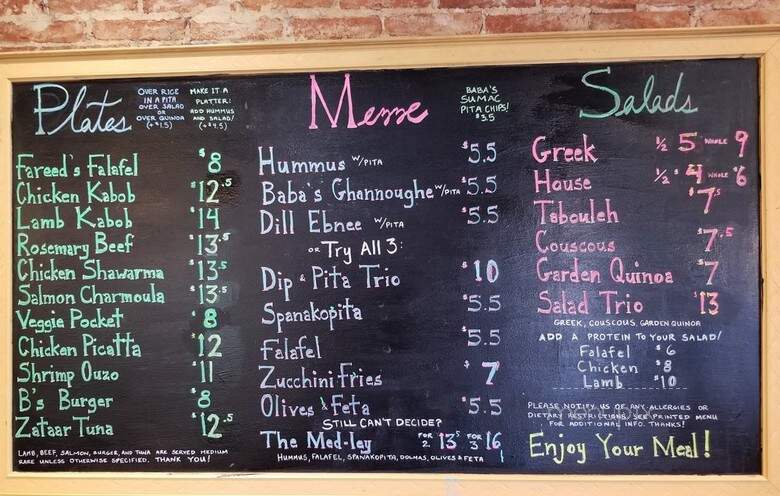 Plates
OVER RICE
IN A PITA
OVER SALAD
OR
OVER QUINOA
(+$1.5)
MAKE IT A
PLATTER:
ADD HUMMUS
AND SALAD!
(+$4.5)
Fareed's Falafel $8
Chicken Kabob $12.5
Lamb Kabob $14
Rosemary Beef $13.5
Chicken Shawarma $13.5
Salmon Charmoula $13.5
Veggie Pocket $8
Chicken Picatta $12
Shrimp Ouzo $11
B's Burger $8
Zataar Tuna $12.5
LAMB, BEEF, SALMON, BURGER, AND TUNA ARE SERVED MEDIUM
RARE UNLESS OTHERWISE SPECIFIED. THANK YOU!
Mezze
BABA'S
SUMAC
PITA CHIPS!
$3.5
Hummus W/PITA $5.5
Baba's Ghannoughe W/PITA $5.5
Dill Ebnee W/PITA $5.5
OR Try All 3:
Dip & Pita Trio $10
Spanakopita $5.5
Falafel $5.5
Zucchini Fries $7
Olives & Feta $5.5
STILL CAN'T DECIDE?
The Med-ley FOR 2 $13.5 FOR 3 $16
HUMMUS, FALAFEL, SPANAKOPITA, DOLMAS, OLIVES & FETA
Salads
Greek ½ $5 WHOLE 9
House ½ $4 WHOLE $6
Tabouleh $7.5
Couscous $7.5
Garden Quinoa $7
Salad Trio $13
GREEK, COUSCOUS, GARDEN QUINOA
ADD A PROTEIN TO YOUR SALAD!
Falafel $6
Chicken $8
Lamb $10
PLEASE NOTIFY US OF ANY ALLERGIES OR
DIETARY RESTRICTIONS. SEE PRINTED MENU
FOR ADDITIONAL INFO. THANKS!
Enjoy Your Meal!